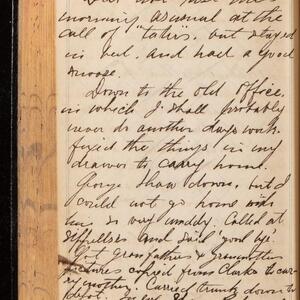 morning as usual at the
call of "taters", but stayed
in bed, and had a good
snooze.
Down to the old office,
in which I shall probably
never do another days work.
fixed the things in my
drawer to carry home.
George Shaw down, but I
could not go home was
so very muddy. Called at
and said 'good bye'.
Got Grandfather & Grandmother
pictures copied from Clarks to
Mother. Carried trunk down to
depot.